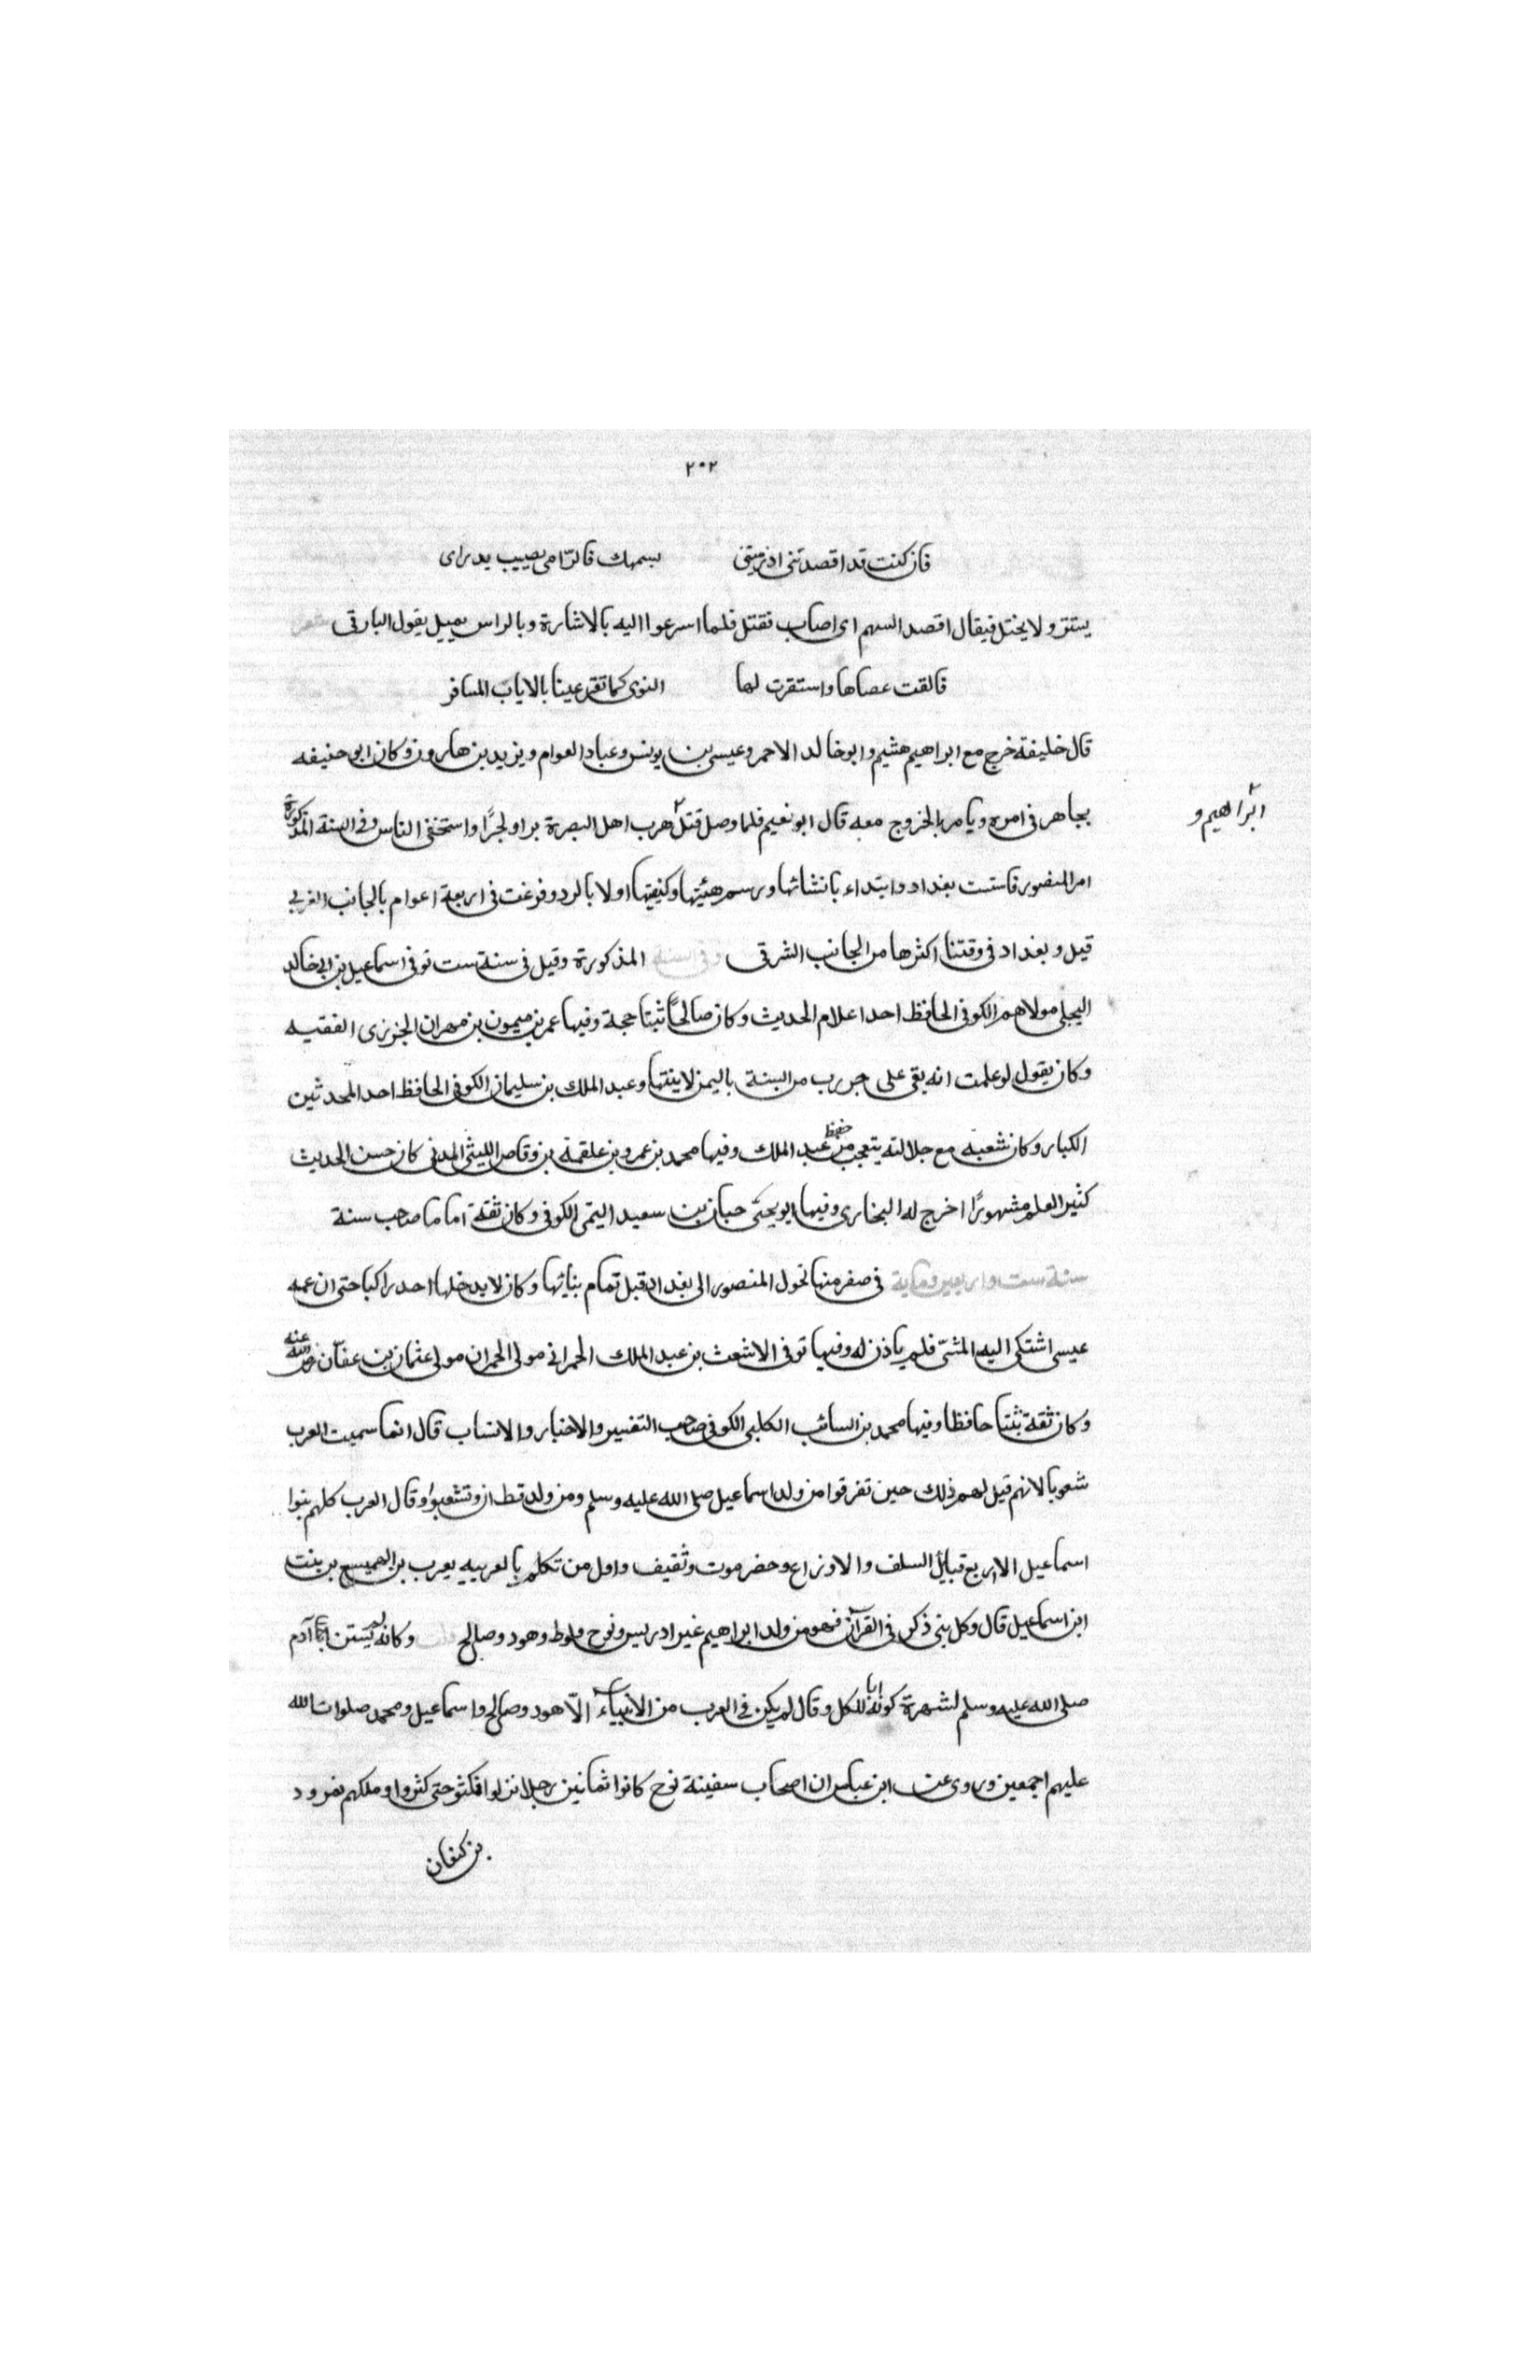 ٢٠٢
فان كنت قد اقصدتنى اذ رميتنى بسهمك فالرامى يصيب يدراى
يستتر ولا يختل فيقال اقصد السهم اى اصاب فقتل فلما اسرعوا اليه بالاشارة وبالراس يميل يقول البارقى شعر
فالقت عصاها واستقرت لها النوى كما تقر عينا بالاياب المسافر
قال خليفة خرج مع ابراهيم هشيم وابو خالد الاحمر وعيسى بن يونس وعباد العوام ويزيد بن هارون وكان ابو حنيفه
يجاهر فى امره ويامر بالخروج معه قال ابو نعيم فلما وصل قتل هرب اهل البصرة برا وبحرًا واستخفى الناس وفى السنة المذكورة
ابراهيم و
امر المنصور فاسست بغداد وابتداء بانشائها ورسم هيئتها وكيفيتها اولا بالرد وفرغت فى اربعة اعوام بالجانب الغربى
قيل وبغداد فى وقتنا اكثرها من الجانب الشرقى وفى السنة المذكورة وقيل فى سنة ست توفى اسماعيل بن ابى خالد
البجلى مولاهم الكوفى الحافظ احد اعلام الحديث وكان صالحًا ثبتا حجة وفيها عمر بن ميمون بن مهران الجزرى الفقيه
وكان يقول لو علمت انه بقى على حرب من السنة باليمن لاتيتها وعبد الملك بن سليمان الكوفى الحافظ احد المحدثين
الكبار وكان شعبه مع جلالته يتعجب من حفظ عبد الملك وفيها محمد بن عمرو بن علقمة بن وقاص الليثى المدنى كان حسن الحديث
كثير العلم مشهورًا اخرج له البخارى وفيها ابو يحيى حبان بن سعيد التيمى الكوفى وكان ثقة اماما صاحب سنة
سنة ست واربعين وماية فى صفر منها تحول المنصور الى بغداد قبل تمام بنائها وكان لا يدخلها احد راكبا حتى ان عمه
عيسى اشتكى اليه المشى فلم ياذن له وفيها توفى الاشعث بن عبد الملك الحمرانى مولى الحمران مولى عثمان بن عفان رضى الله عنه
وكان ثقة ثبتا حافظا وفيها محمد بن السائب الكلبى الكوفى صاحب التفسير والاخبار والانساب قال انما سميت العرب
شعوبا لانهم قيل لهم ذلك حين تفرقوا من ولد اسماعيل صلى الله عليه وسلم ومن ولد قحطان وتشعبوا وقال العرب كلهم بنوا
اسماعيل الا اربع قبايل السلف والاوزاع وحضرموت وثقيف واول من تكلم بالعربيه يعرب بن الهميسع بن بنت
ابن اسماعيل قال وكل بنى ذكر فى القرآن فهو من ولد ابراهيم غير ادريس ونوح ولوط وهود وصالح وكانه لم يستثن آدم
صلى الله عليه وسلم لشهرة كونه ابا للكل وقال لم يكن فى العرب من الانبياء الّا هود وصالح واسماعيل ومحمد صلوات الله
عليهم اجمعين وروى عن ابن عباس ان اصحاب سفينة نوح كانوا ثمانين رجلا نزلوا فكثو حتى كثروا وملكهم نمرود
بن كنعان